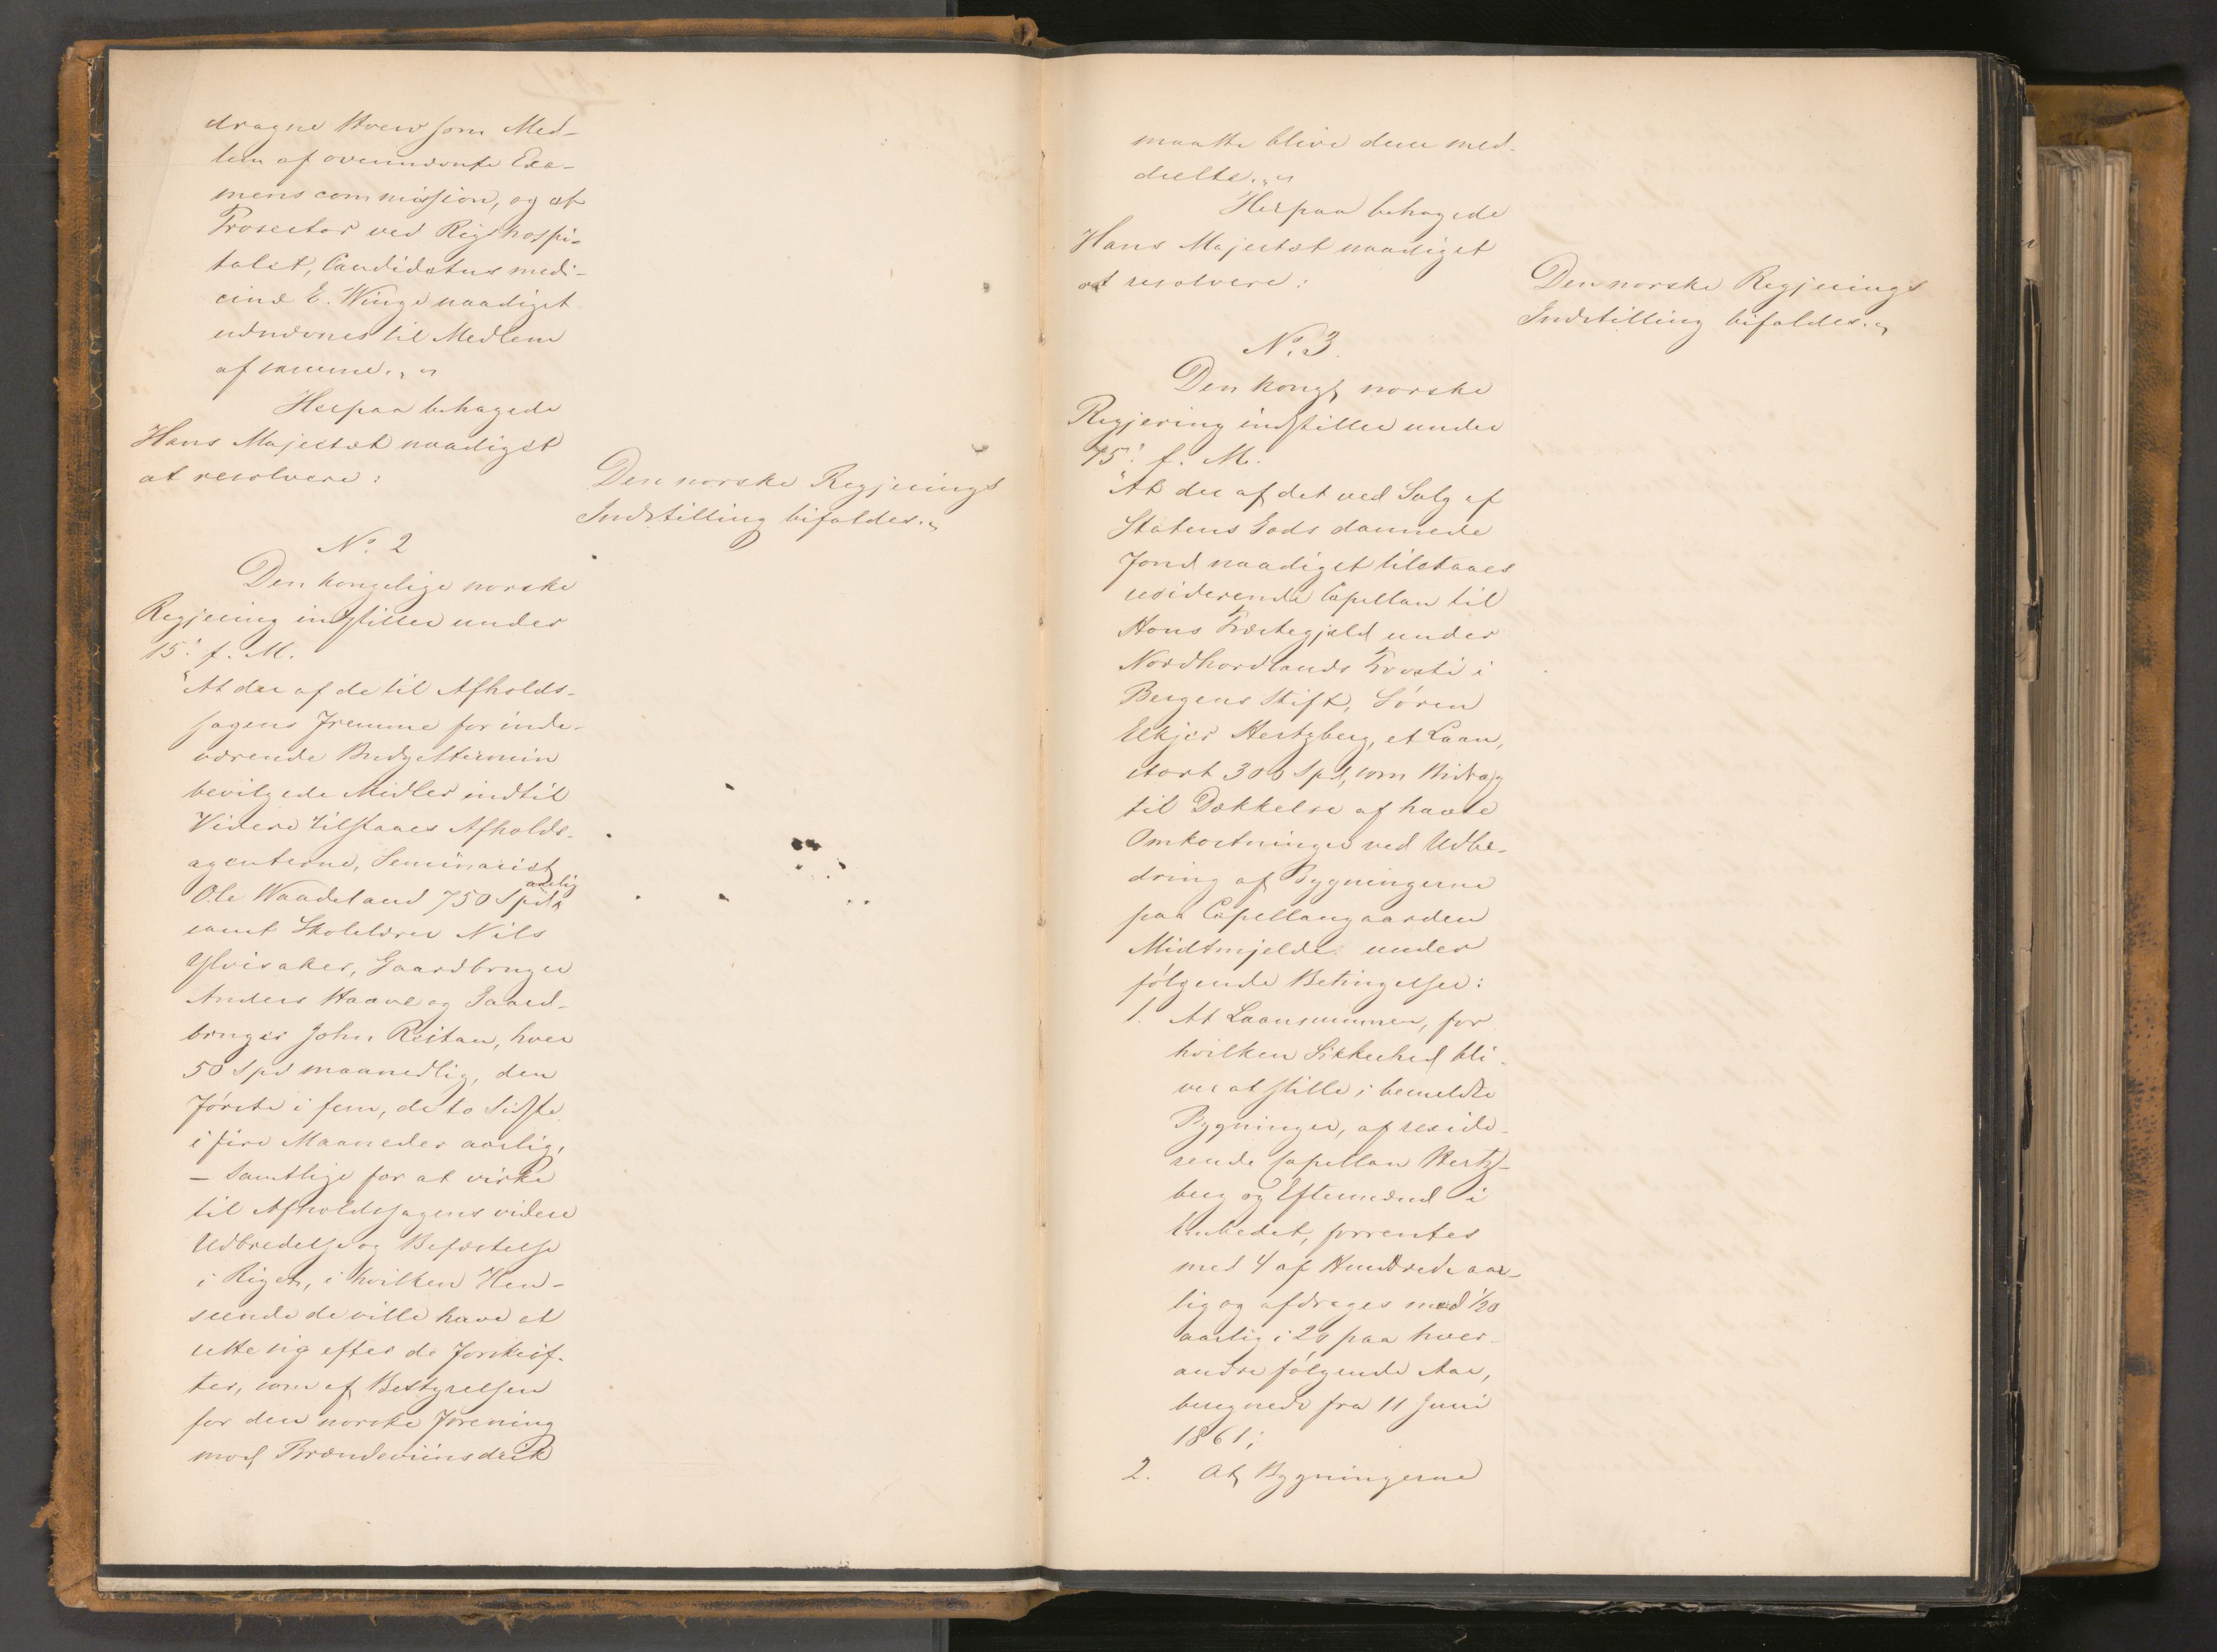 dragne Hverv som Med-
lem af ovennævnte Exa-
menscommission, og at
Prosector ved Rigshospi-
talet, Candidatus medi-
cinæ E. Winge naadigst
udnævnes til Medlem
af samme.„ „
Herpaa behagede
Hans Majestæt naadigst
at resolvere:
Den norske Regjerings
Indstilling bifaldes.„
No. 2
Den kongelige norske
Regjering indstiller under
15. f. M.
"At der af de til Afholds-
sagens Fremme for inde-
værende Budgettermin
bevilgede Midler indtil
Videre tilstaaes Afholds-
agenterne, Seminarist
Ole Waadeland 750 Spd aarlig
samt Skolelærer Nils
Ylvisaker, Gaardbruger
Anders Haave og Gaard-
bruger John Reitan, hver
50 Spd maanedlig, den
Første i fem, de to Sidste
i fire Maaneder aarlig,
– Samtlige for at virke
til Afholdssagens videre
Udbredelse og Befæstelse
i Riget, i hvilken Hen-
seende de ville have at
rette sig efter de Forskrif-
ter, som af Bestyrelsen
for den norske Forening
mod Brændeviinsdrik
maatte blive dem med-
deelte.„ „
Herpaa behagede
Hans Majestæt naadigst
at resolvere:
Den norske Regjerings
Indstilling bifaldes.„
No. 3.
Den kongl. norske
Regjering indstiller under
15. f. M.
"At der af det ved Salg af
Statens Gods dannede
Fond naadigst tilstaaes
residerende Capellan til
Hous Præstegjeld under
Nordhordlands Provsti i
Bergens Stift, Søren
Elkjer Hertzberg, et Laan,
stort 300 Spd, som Bidrag
til Dækkelse af havte
Omkostninger ved Udbe-
dring af Bygningerne
paa Capellangaarden
Midtmjelde under
følgende Betingelser:
1. At Laansummen, for
hvilken Sikkerhed bli-
ver at stille i bemeldte
Bygninger, af reside-
rende Capellan Hertz-
berg og Eftermænd i
Embedet, forrentes
med 4 af Hundrede aar-
lig og afdrages med 1/20
aarlig i 20 paa hver-
andre følgende Aar,
beregnede fra 11 Juni
1861;
2. At Bygningerne